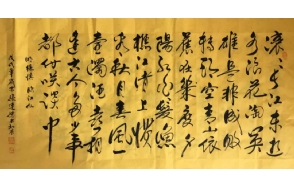 滚滚长江东逝
水浪花淘尽英
雄是非成败
转头空青山依
旧在几度夕
阳红白发渔
樵江渚上惯
看秋月春风一
壶浊酒喜相
逢古今多少事
都付笑谈中